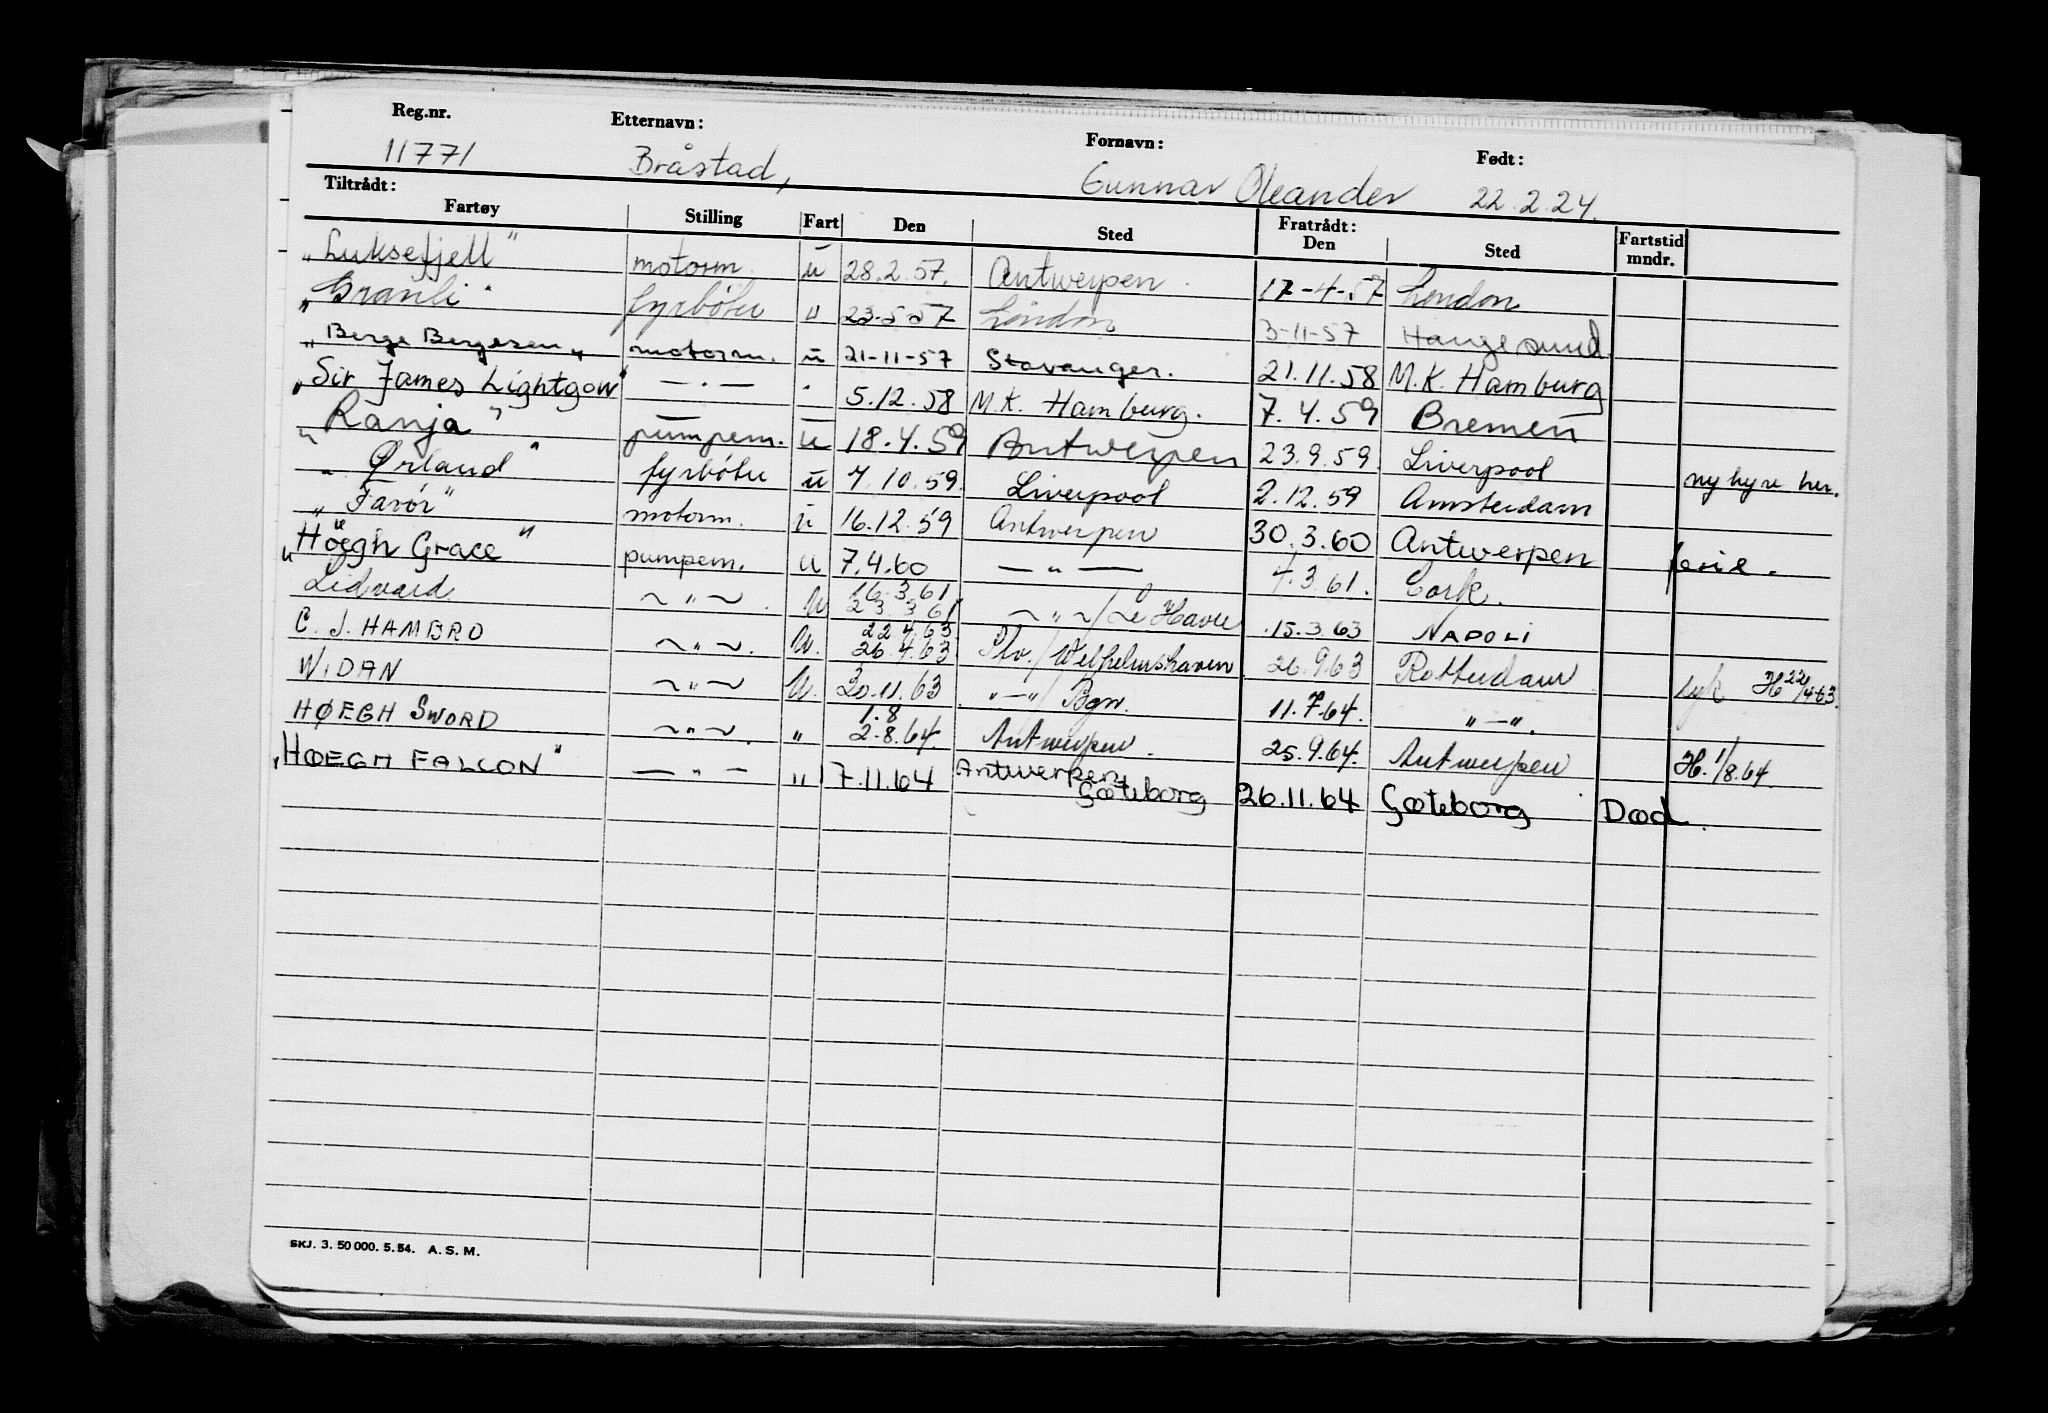 Reg.nr. Etternavn: Fornavn: Født:
11771 Bråstad, Gunnar Oleander 22.2.24.
Tiltrådt: Fratrådt:
Fartøy Stilling Fart Den Sted Den Sted Fartstid mndr.
"Luksefjell" motorm. u 28.2.57. Antwerpen 17-4-57 London
"Granli" fyrbøter u 23-5-57 London 3-11-57 Haugesund
"Berge Bergesen" motorm. u 21-11-57 Stavanger. 21.11.58 M.K. Hamburg
"Sir James Lightgow" — . — . 5.12.58 M.K. Hamburg. 7.4.59 Bremen
"Ranja" pumpem. u 18.4.59 Antwerpen 23.9.59 Liverpool ny hyre her.
"Ørland" fyrbøter u 7.10.59. Liverpool 2.12.59 Amsterdam
"Farör" motorm. u 16.12.59 Antwerpen 30.3.60 Antwerpen ferie.
"Höegh Grace" pumpem. u 7.4.60 — " — 4.3.61. Cork.
Lidvard ~ " ~ . U 16.3.61 23.3.61 ~ " ~ / Le Havre 15.3.63 NAPOLI
C. J. HAMBRO ~ " ~ . U. 22.4.63 26.4.63 / Wilhelmshaven 26.9.63 Rotterdam syk H 22/4-63.
WIDAN ~ " ~ U. 30.11.63 " — " / Bgn. 11.7.64. " — ".
HØEGH SWORD ~ " ~ . " 1.8 2.8.64. Antwerpen. 25.9.64. Antwerpen H. 1/8.64.
"HØEGH FALCON" — " — " 17.11.64 Antwerpen Gøteborg 26.11.64 Gøteborg Død.
SKJ. 3. 50 000. 5. 54. A. S. M.